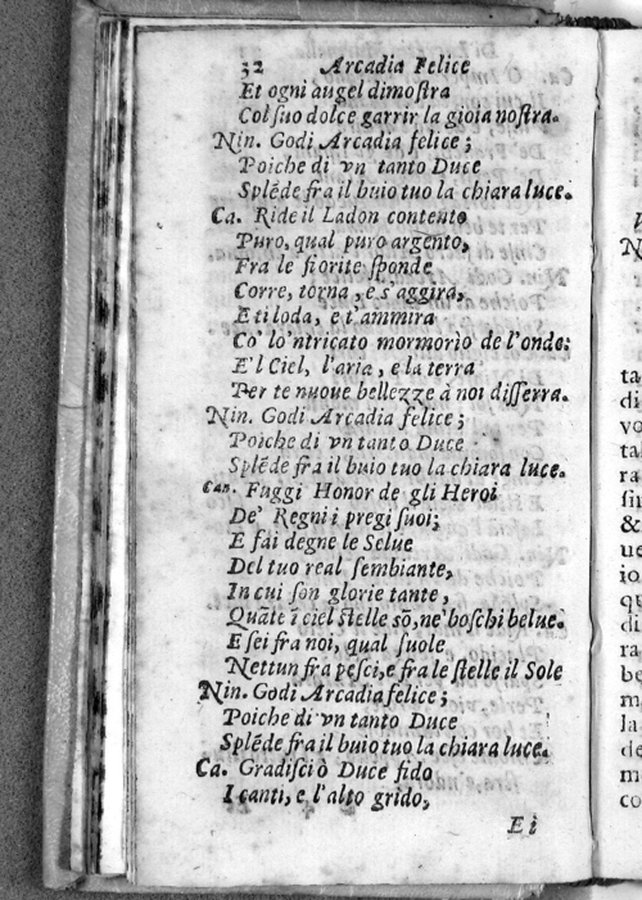 32 Arcadia Felice
Et ogni augel dimoſtra
Col ſuo dolce garrir la gioia noſtra.
Nin. Godi Arcadia felice;
Poiche di vn tanto Duce
Splẽde fra il buio tuo la chiara luce.
Ca. Ride il Ladon contento
Puro, qual puro argento,
Fra le fiorite ſponde
Corre, torna, e s'aggira,
E ti loda, e t'ammira
Co' lo'ntricato mormorìo de l'onde:
E'l Ciel, l'aria, e la terra
Per te nuoue bellezze à noi diſſerra.
Nin. Godi Arcadia felice;
Poiche di vn tanto Duce
Splẽde fra il buio tuo la chiara luce.
Can. Fuggi Honor de gli Heroi
De' Regni i pregi ſuoi;
E fai degne le Selue
Del tuo real ſembiante,
In cui ſon glorie tante,
Quãte ĩ ciel ſtelle sõ, ne' boſchi belue.
E ſei fra noi, qual ſuole
Nettun fra peſci, e fra le ſtelle il Sole
Nin. Godi Arcadia felice;
Poiche di vn tanto Duce
Splẽde fra il buio tuo la chiara luce.
Ca. Gradiſci ò Duce fido
I canti, e l'alto grido,
Ei
ta
di
vo
ta
ra
ſin
&
ue
io
qu
di
ra
be
m
la
de
m
co